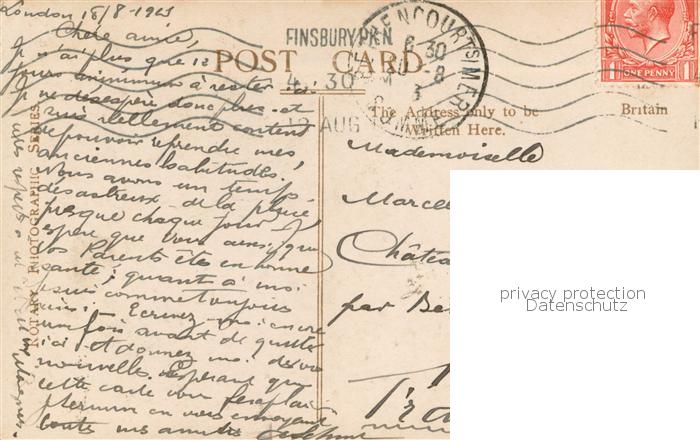 London 18/8-1923
Chère amie,
je n'ai plus que 12
jours minimum à rester
je ne désespère donc plus et
suis réellement content
de pouvoir reprendre mes
anciennes habitudes.
Nous avons un temps
désastreux de la pluie
presque chaque jour. J'
espère que vous ainsi que
vos Parents êtes en bonne
santé; quant à moi
je suis comme toujours
ainsi. Ecrivez-moi encore
une fois avant de quitter
ici et donnez moi de vos
nouvelles. Espérant que
cette carte vous fera plaisir
je termine en vous envoyant
toutes mes amitiés
mes respects à
ROTARY PHOTOGRAPHIC SERIES
POST CARD
FINSBURY PK N
4.30
AUG
6 30
ONE PENNY
The Address only to be
Written Here.
Britain
Mademoiselle
Marcel
Château
par Be
privacy protection
Datenschutz